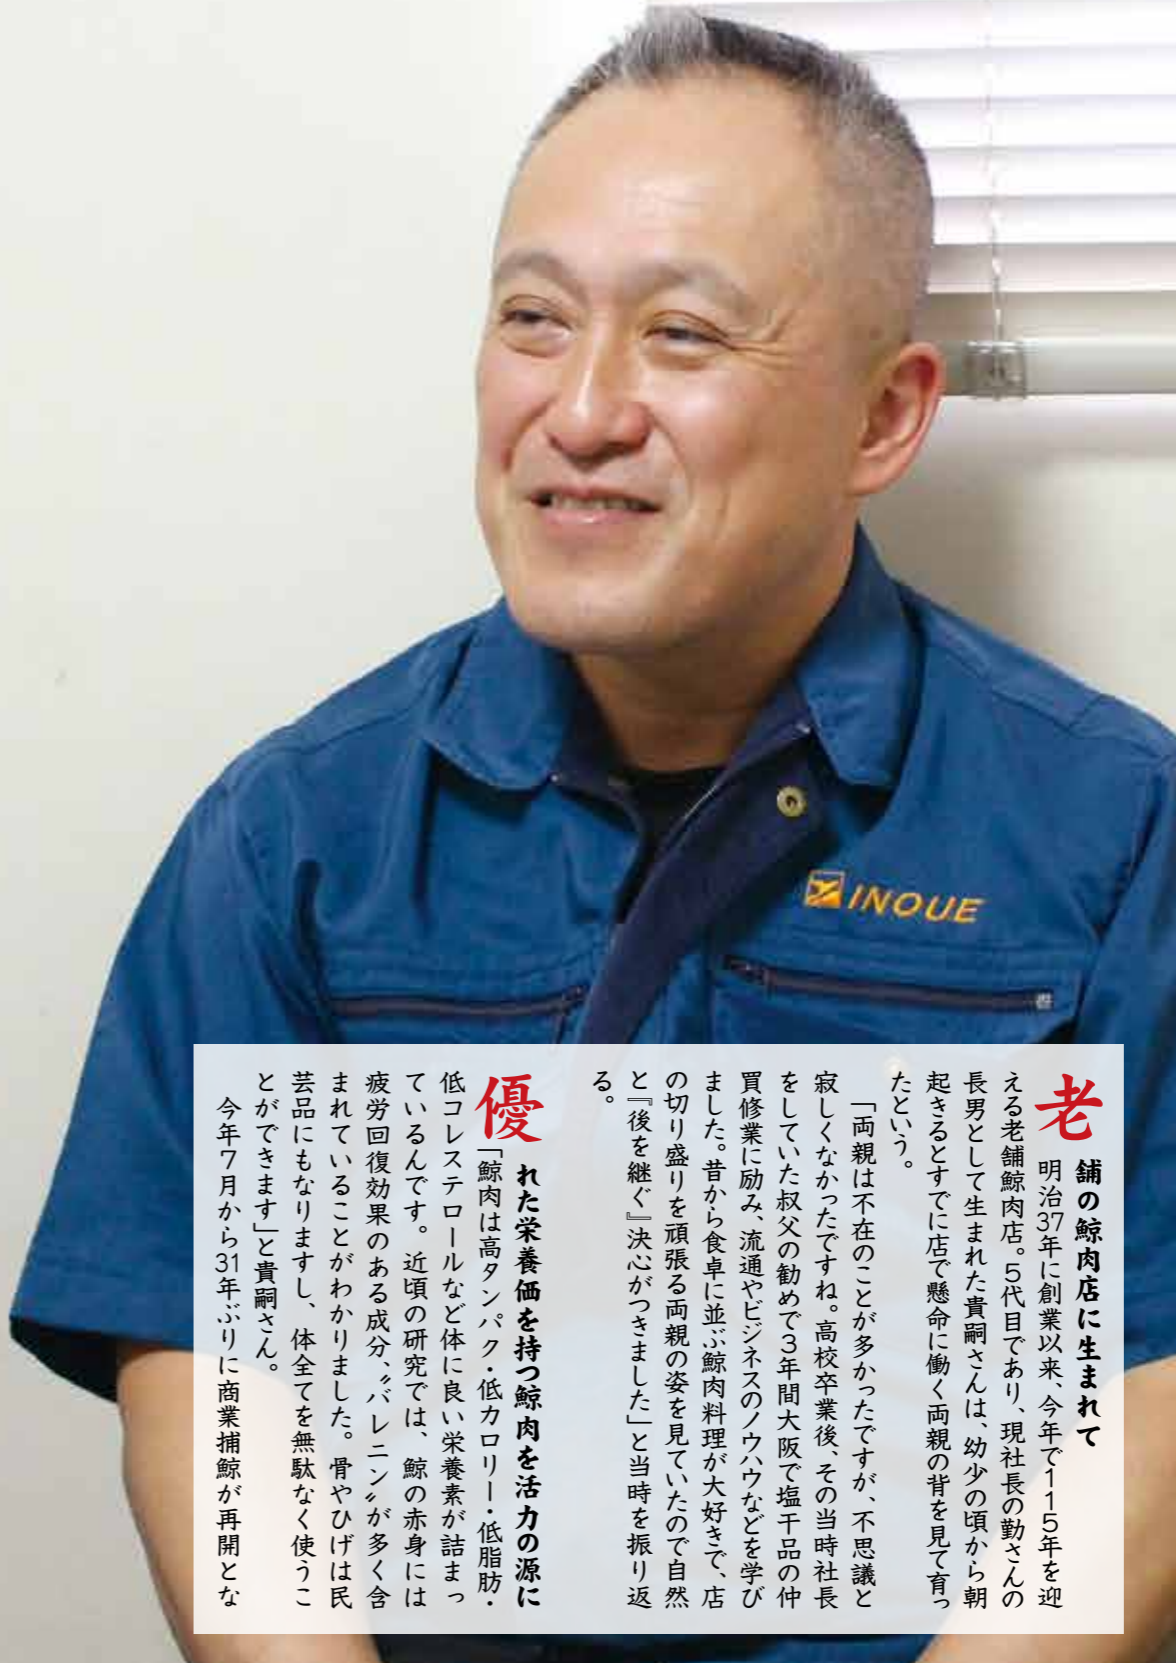 INOUE
老舗の鯨肉店に生まれて
明治37年に創業以来、今年で115年を迎
える老舗鯨肉店。5代目であり、現社長の勤さんの
長男として生まれた貴嗣さんは、幼少の頃から朝
起きるとすでに店で懸命に働く両親の背を見て育っ
たという。
「両親は不在のことが多かったですが、不思議と
寂しくなかったですね。高校卒業後、その当時社長
をしていた叔父の勧めで3年間大阪で塩干品の仲
買修業に励み、流通やビジネスのノウハウなどを学び
ました。昔から食卓に並ぶ鯨肉料理が大好きで、店
の切り盛りを頑張る両親の姿を見ていたので自然
と『後を継ぐ』決心がつきました」と当時を振り返
る。
優れた栄養価を持つ鯨肉を活力の源に
「鯨肉は高タンパク・低カロリー・低脂肪・
低コレステロールなど体に良い栄養素が詰まっ
ているんです。近頃の研究では、鯨の赤身には
疲労回復効果のある成分、〝バレニン〟が多く含
まれていることがわかりました。骨やひげは民
芸品にもなりますし、体全てを無駄なく使うこ
とができます」と貴嗣さん。
今年7月から31年ぶりに商業捕鯨が再開とな